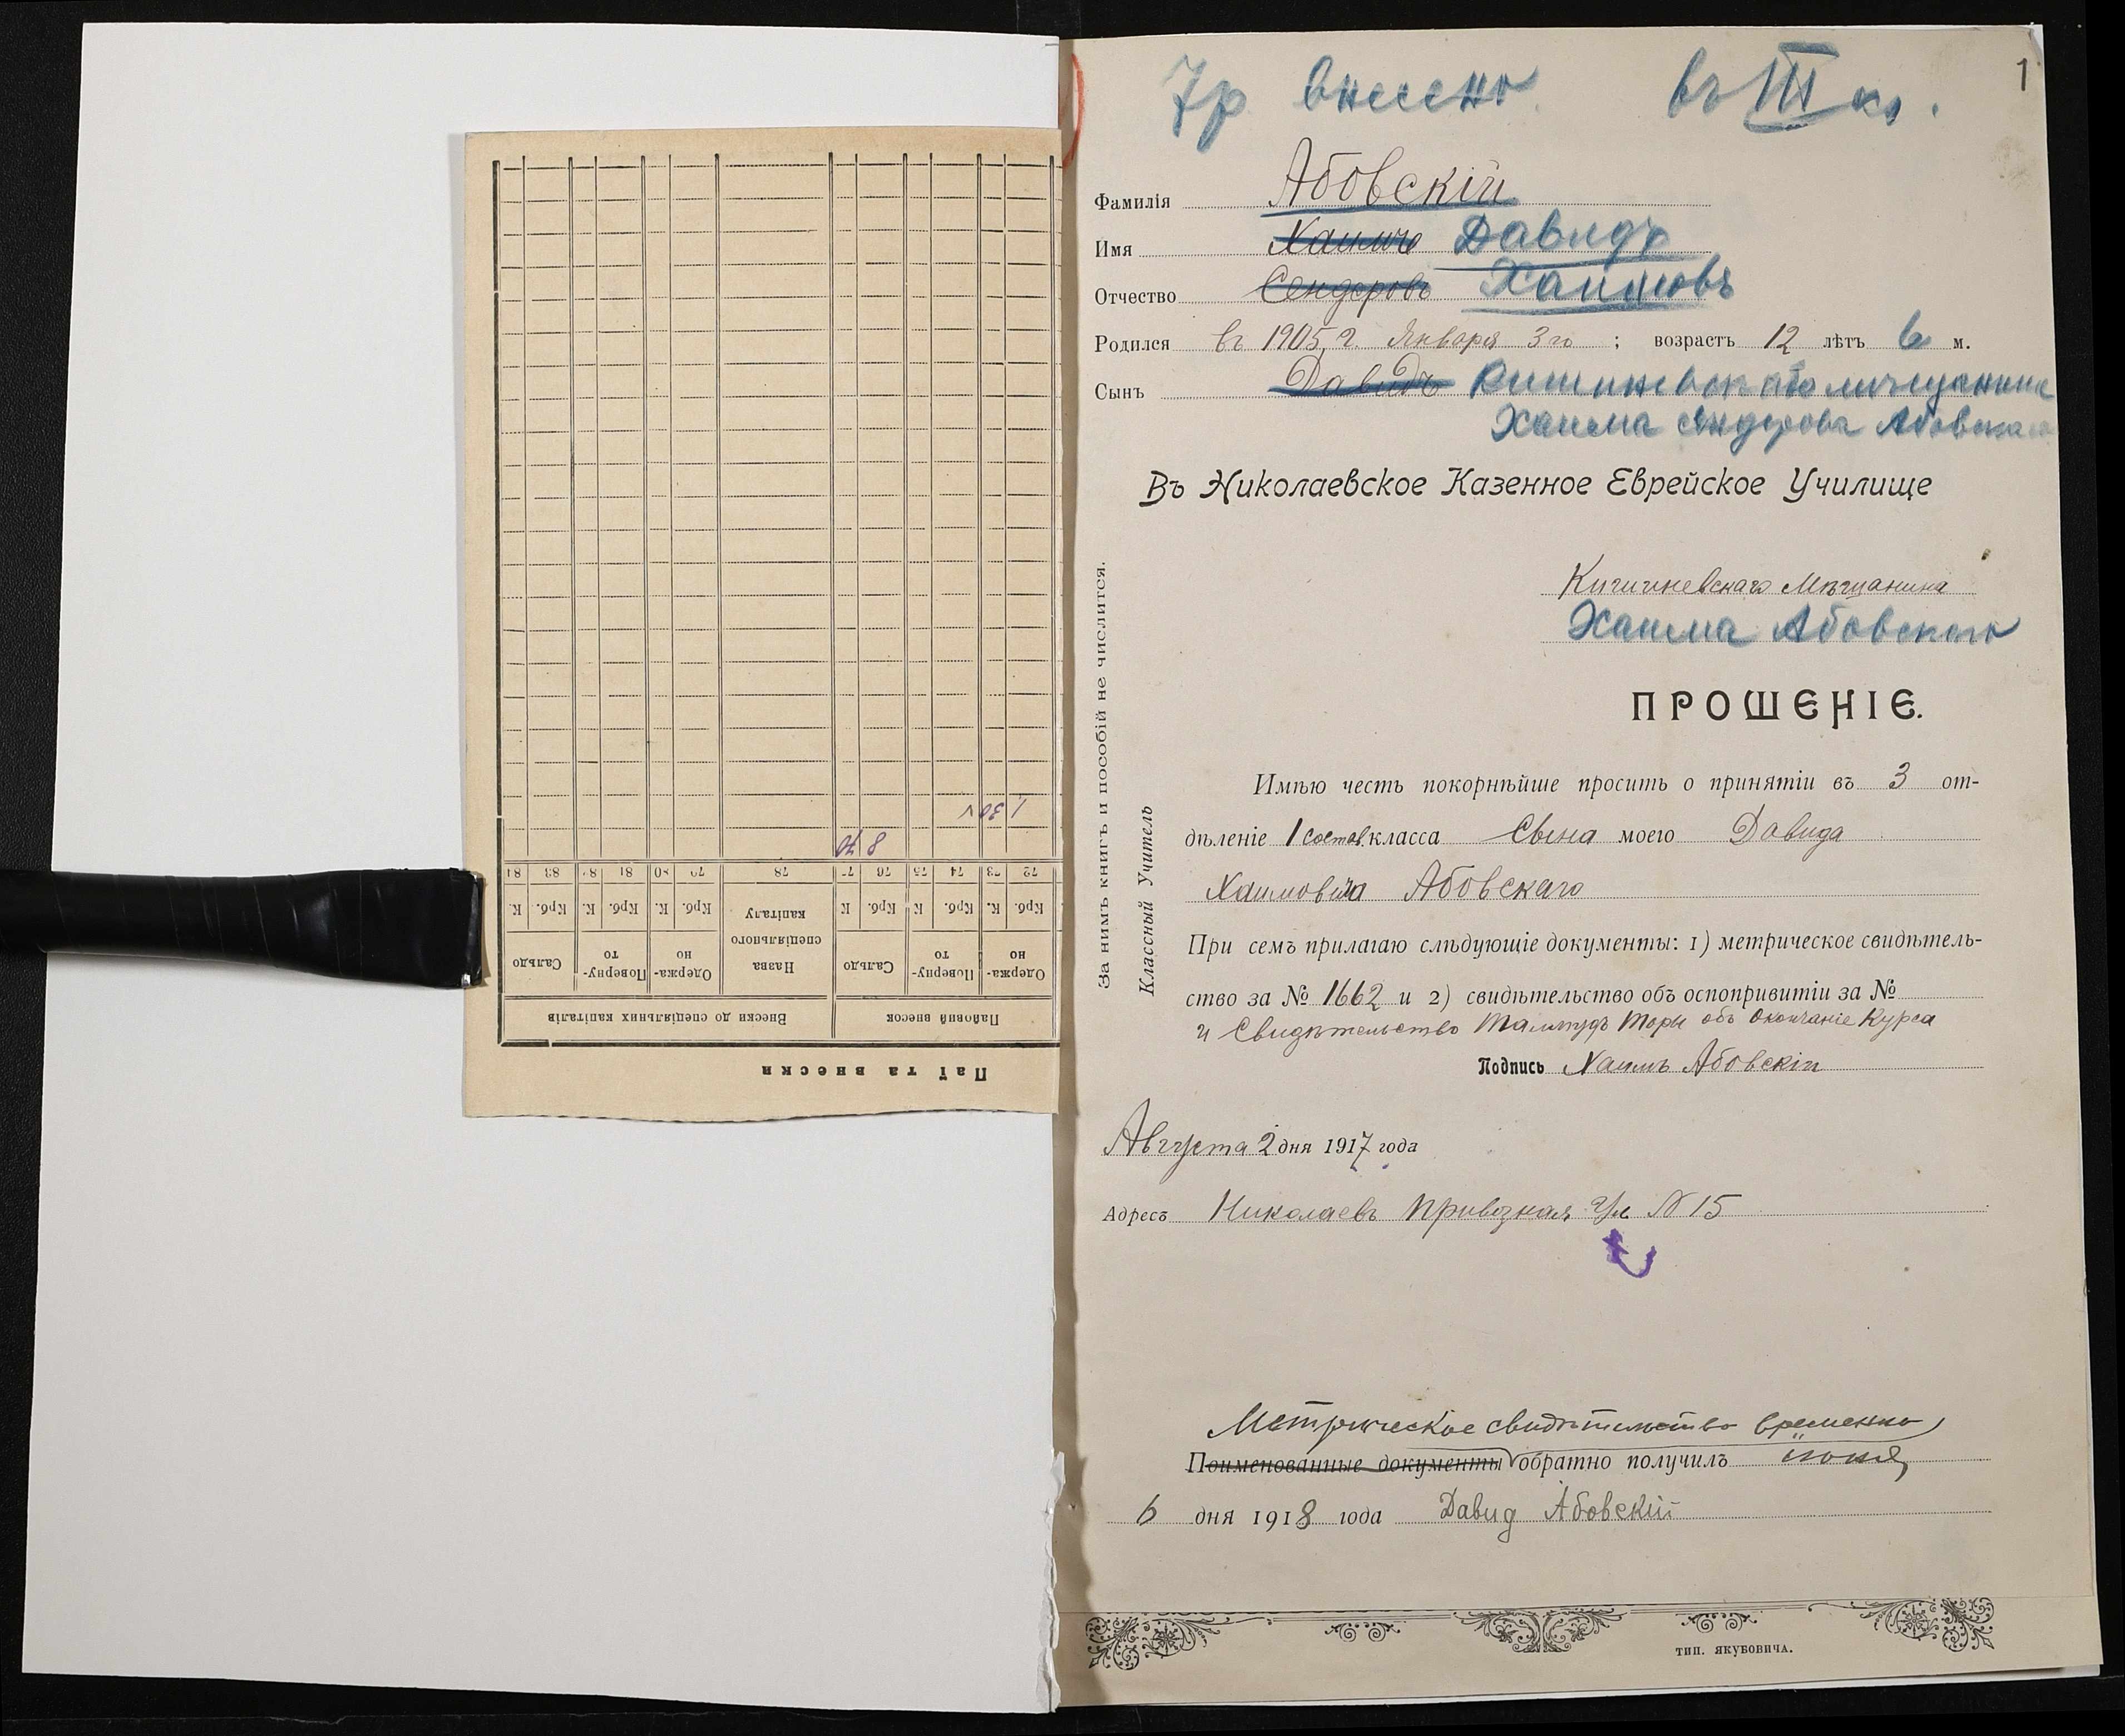 7р внесено въ III кл.
1
Фамилія Абовскій
Имя Хаимъ Давидъ
Отчество Сендеровъ Хаимовъ
Родился въ 1905 г. Января 3го ; возрастъ 12 лѣтъ 6 м.
Сынъ Давидъ Кишиневскаго мѣщанина
Хаима Сендерова Абовскаго
Въ Николаевское Казенное Еврейское Училище
Кишиневскаго Мѣщанина
Хаима Абовскаго
ПРОШЕНІЕ.
Имѣю честь покорнѣйше просить о принятіи въ 3 от-
дѣленіе 1 состав. класса Сына моего Давида
Хаимовича Абовскаго
При семъ прилагаю слѣдующіе документы: 1) метрическое свидѣтель-
ство за № 1662 и 2) свидѣтельство объ оспопривитіи за №
и Свидѣтельство Талмудъ Торы объ Окончаніе Курса
Подпись Хаимъ Абовскій
Августа 2 дня 1917 года
Адресъ Николаевъ Привозная ул № 15
Метрическое свидѣтельство временно
Поименованные документы обратно получилъ іюня
6 дня 1918 года Давид Абовскій
ТИП. ЯКУБОВИЧА.
За нимъ книгъ и пособій не числится.
Классный Учитель
Паї та внески
Пайовий внесок Внески до спеціяльних капіталів
Одержа- Поверну- Сальдо Назва Одержа- Поверну- Сальдо
но то спеціяльного но то
капіталу
Крб. К. Крб. К Крб. К Крб. К. Крб. К Крб. К.
72 73 74 75 76 77 78 79 80 81 82 83 84
8 70
1 30